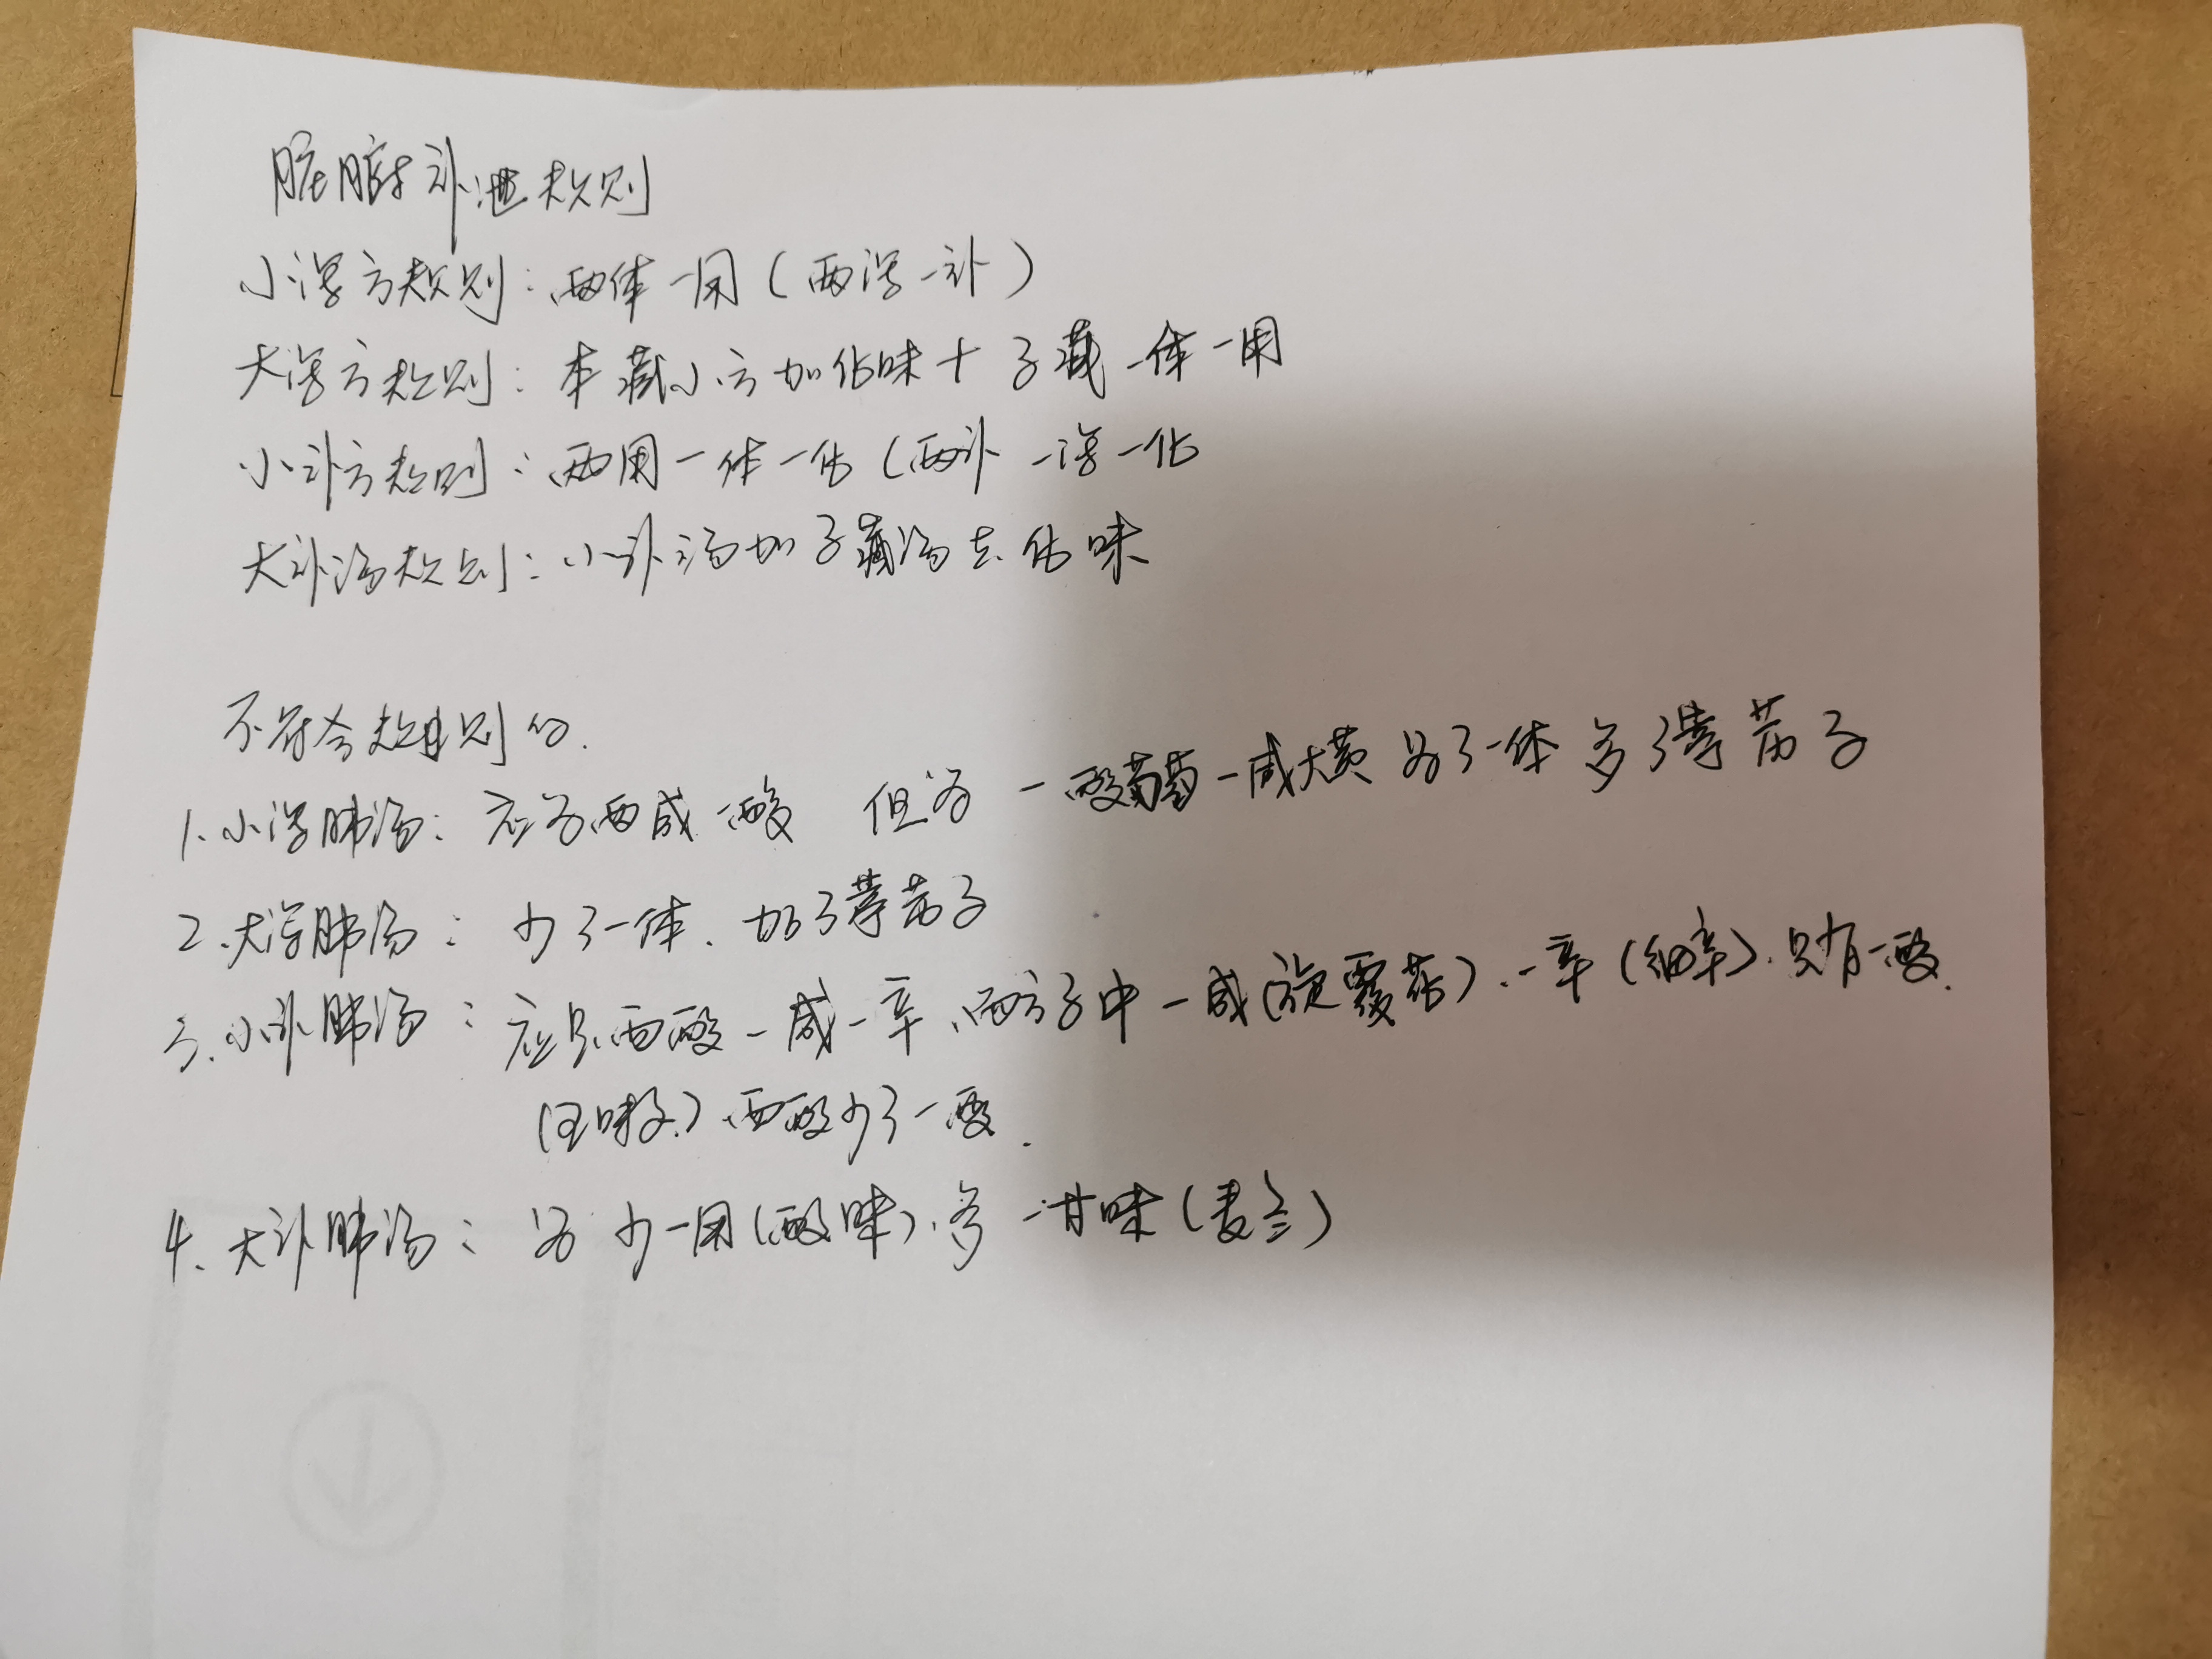 脏腑补泄规则
小泻方规则：两体一用（两泻一补）
大泻方规则：本藏小方加化味十子藏一体一用
小补方规则：两用一体一化（两补一泻一化
大补汤规则：小补汤加子藏汤去化味
不符合规则的.
1.小泻肺汤：应为两咸一酸 但为一酸芍药一咸大黄 为了一体多了葶苈子
2.大泻肺汤：少了一体、加了葶苈子
3.小补肺汤：应是两酸一咸一辛、两方子中一咸（旋覆花）、一辛（细辛）.只有一酸.
（五味子）.两酸少了一酸.
4.大补肺汤：为少一用（酸味）.多一甘味（麦冬）